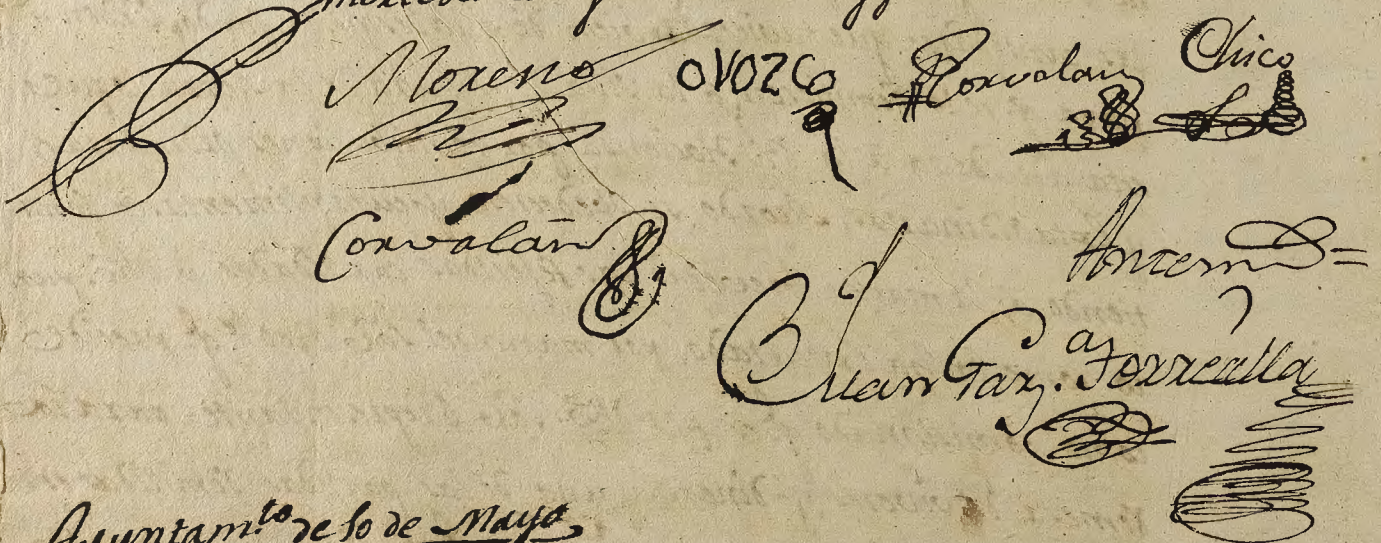 Moreno OVOZCO Corvalan Chico
Corvalán
Antem
Juan Garz.ª Torrealla
Ayuntam.to de 10 de Mayo